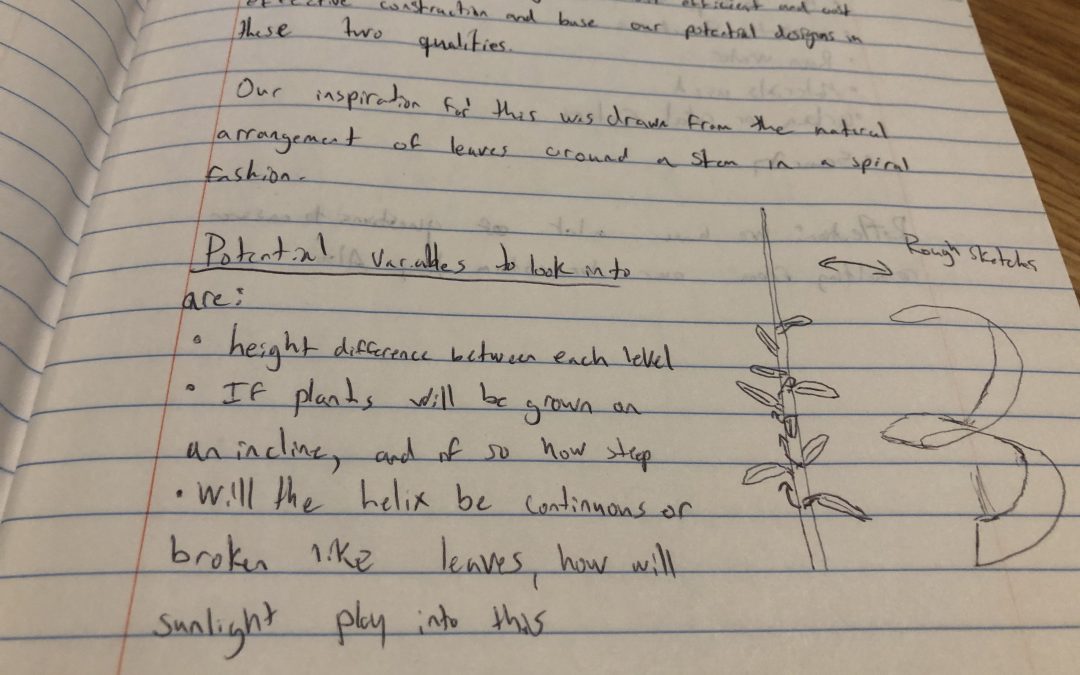 construction and base our potential designs in
these two qualities.
Our inspiration for this was drawn from the natural
arrangement of leaves around a stem in a spiral
fashion.
Potential variables to look into
are:
• height difference between each level
• If plants will be grown on
an incline, and if so how steep
• Will the helix be continuous or
broken like leaves, how will
sunlight play into this
Rough sketches